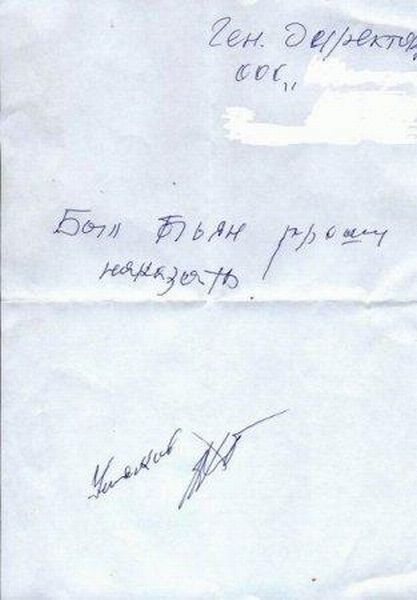 Ген. Директор
ООО „
Был пьян прошу
наказать